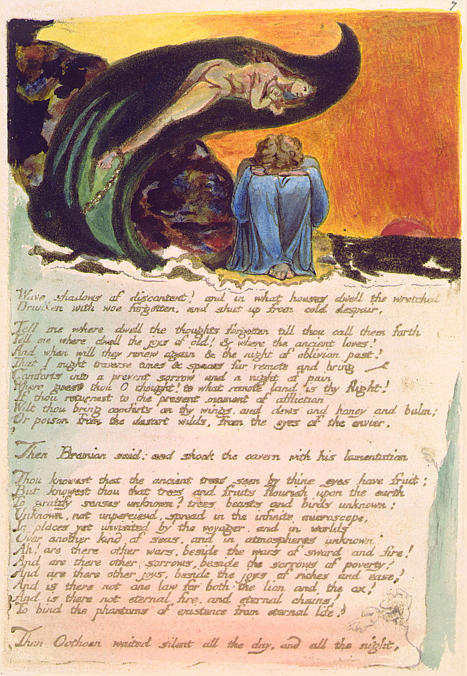 7
Wave shadows of discontent! and in what houses dwell the wretched
Drunken with woe forgotten, and shut up from cold despair,
Tell me where dwell the thoughts forgotten till thou call them forth
Tell me where dwell the joys of old! & where the ancient loves!
And when will they renew again & the night of oblivion past!
That I might traverse times & spaces far remote and bring
Comforts into a present sorrow and a night of pain
Where goest thou O thought! to what remote land is thy flight!
If thou returnest to the present moment of affliction
Wilt thou bring comforts on thy wings, and dews and honey and balm;
Or poison from the desart wilds, from the eyes of the envier.
Then Bromion said: and shook the cavern with his lamentation
Thou knowest that the ancient trees seen by thine eyes have fruit;
But knowest thou that trees and fruits flourish upon the earth
To gratify senses unknown? trees beasts and birds unknown:
Unknown, not unpercievd, spread in the infinite microscope,
In places yet unvisited by the voyager, and in worlds
Over another kind of seas, and in atmospheres unknown.
Ah! are there other wars, beside the wars of sword and fire!
And are there other sorrows, beside the sorrows of poverty!
And are there other joys, beside the joys of riches and ease?
And is there not one law for both the lion and the ox?
And is there not eternal fire, and eternal chains?
To bind the phantoms of existence from eternal life?
Then Oothoon waited silent all the day, and all the night,